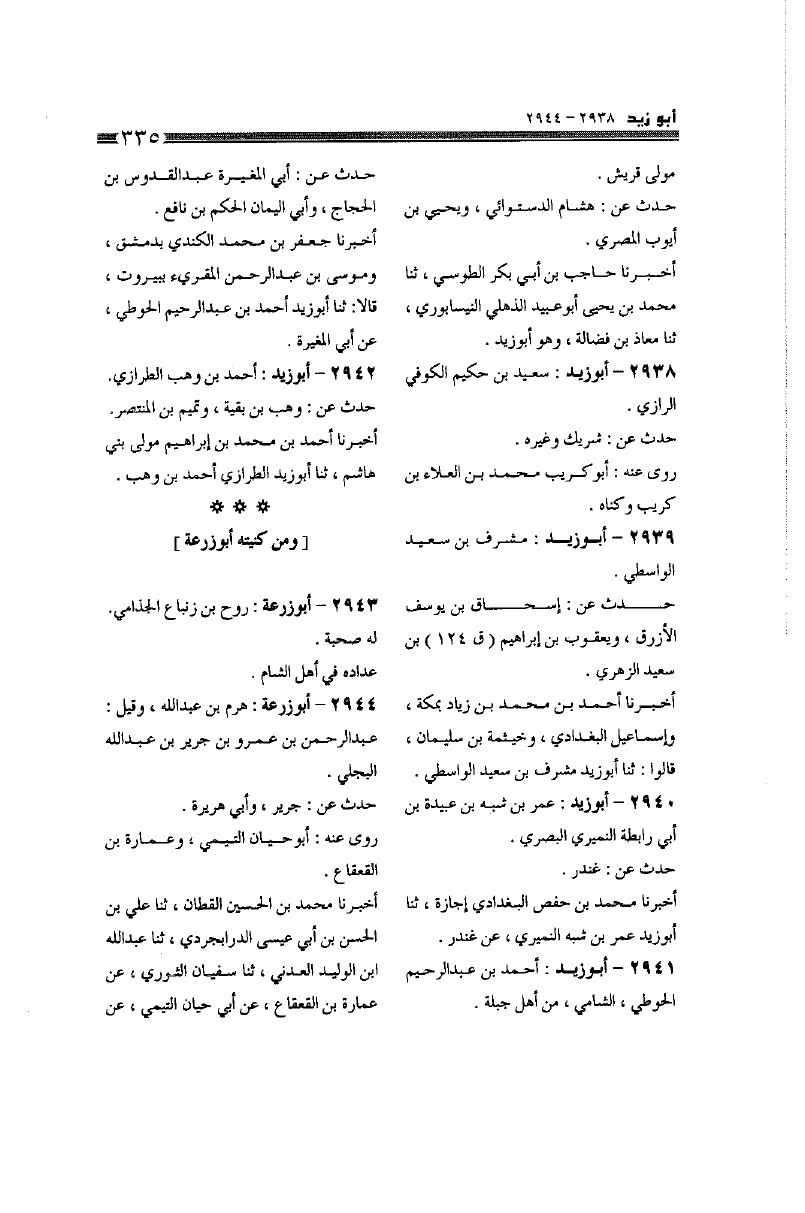 أبو زيد ٢٩٣٨ - ٢٩٤٤
٣٣٥
مولى قريش .
حدث عن : هشام الدستوائي ، ويحيي بن
أيوب المصري .
أخبرنا حاجب بن أبي بكر الطوسي ، ثنا
محمد بن يحيى أبوعبيد الذهلي النيسابوري ،
ثنا معاذ بن فضالة ، وهو أبوزيد .
٢٩٣٨ - أبوزيد : سعيد بن حكيم الكوفي
الرازي .
حدث عن : شريك وغيره .
روى عنه : أبوكريب محمد بن العلاء بن
كريب وكناه .
٢٩٣٩ - أبوزيد : مشرف بن سعيد
الواسطي .
حدث عن : إسحاق بن يوسف
الأزرق ، ويعقوب بن إبراهيم ( ق ١٢٤ ) بن
سعيد الزهري .
أخبرنا أحمد بن محمد بن زياد بمكة ،
وإسماعيل البغدادي ، وخيثمة بن سليمان ،
قالوا : ثنا أبوزيد مشرف بن سعيد الواسطي .
٢٩٤٠ - أبوزيد : عمر بن شبه بن عبيدة بن
أبي رابطة النميري البصري .
حدث عن : غندر .
أخبرنا محمد بن حفص البغدادي إجازة ، ثنا
أبوزيد عمر بن شبه النميري ، عن غندر .
٢٩٤١ - أبوزيد : أحمد بن عبدالرحيم
الحوطي ، الشامي ، من أهل جبلة .
حدث عن : أبي المغيرة عبدالقدوس بن
الحجاج ، وأبي اليمان الحكم بن نافع .
أخبرنا جعفر بن محمد الكندي بدمشق ،
وموسى بن عبدالرحمن المقريء ببيروت ،
قالا: ثنا أبوزيد أحمد بن عبدالرحيم الحوطي ،
عن أبي المغيرة .
٢٩٤٢ - أبوزيد : أحمد بن وهب الطرازي.
حدث عن : وهب بن بقية ، وتميم بن المنتصر.
أخبرنا أحمد بن محمد بن إبراهيم مولى بني
هاشم ، ثنا أبوزيد الطرازي أحمد بن وهب .
* * *
[ ومن كنيته أبوزرعة ]
٢٩٤٣ - أبوزرعة : روح بن زنباع الجذامي.
له صحبة .
عداده في أهل الشام .
٢٩٤٤ - أبوزرعة : هرم بن عبدالله ، وقيل :
عبدالرحمن بن عمرو بن جرير بن عبدالله
البجلي .
حدث عن : جرير ، وأبي هريرة .
روى عنه : أبوحيان التيمي ، وعمارة بن
القعقاع .
أخبرنا محمد بن الحسين القطان ، ثنا علي بن
الحسن بن أبي عيسى الدرابجردي ، ثنا عبدالله
ابن الوليد العدني ، ثنا سفيان الثوري ، عن
عمارة بن القعقاع ، عن أبي حيان التيمي ، عن